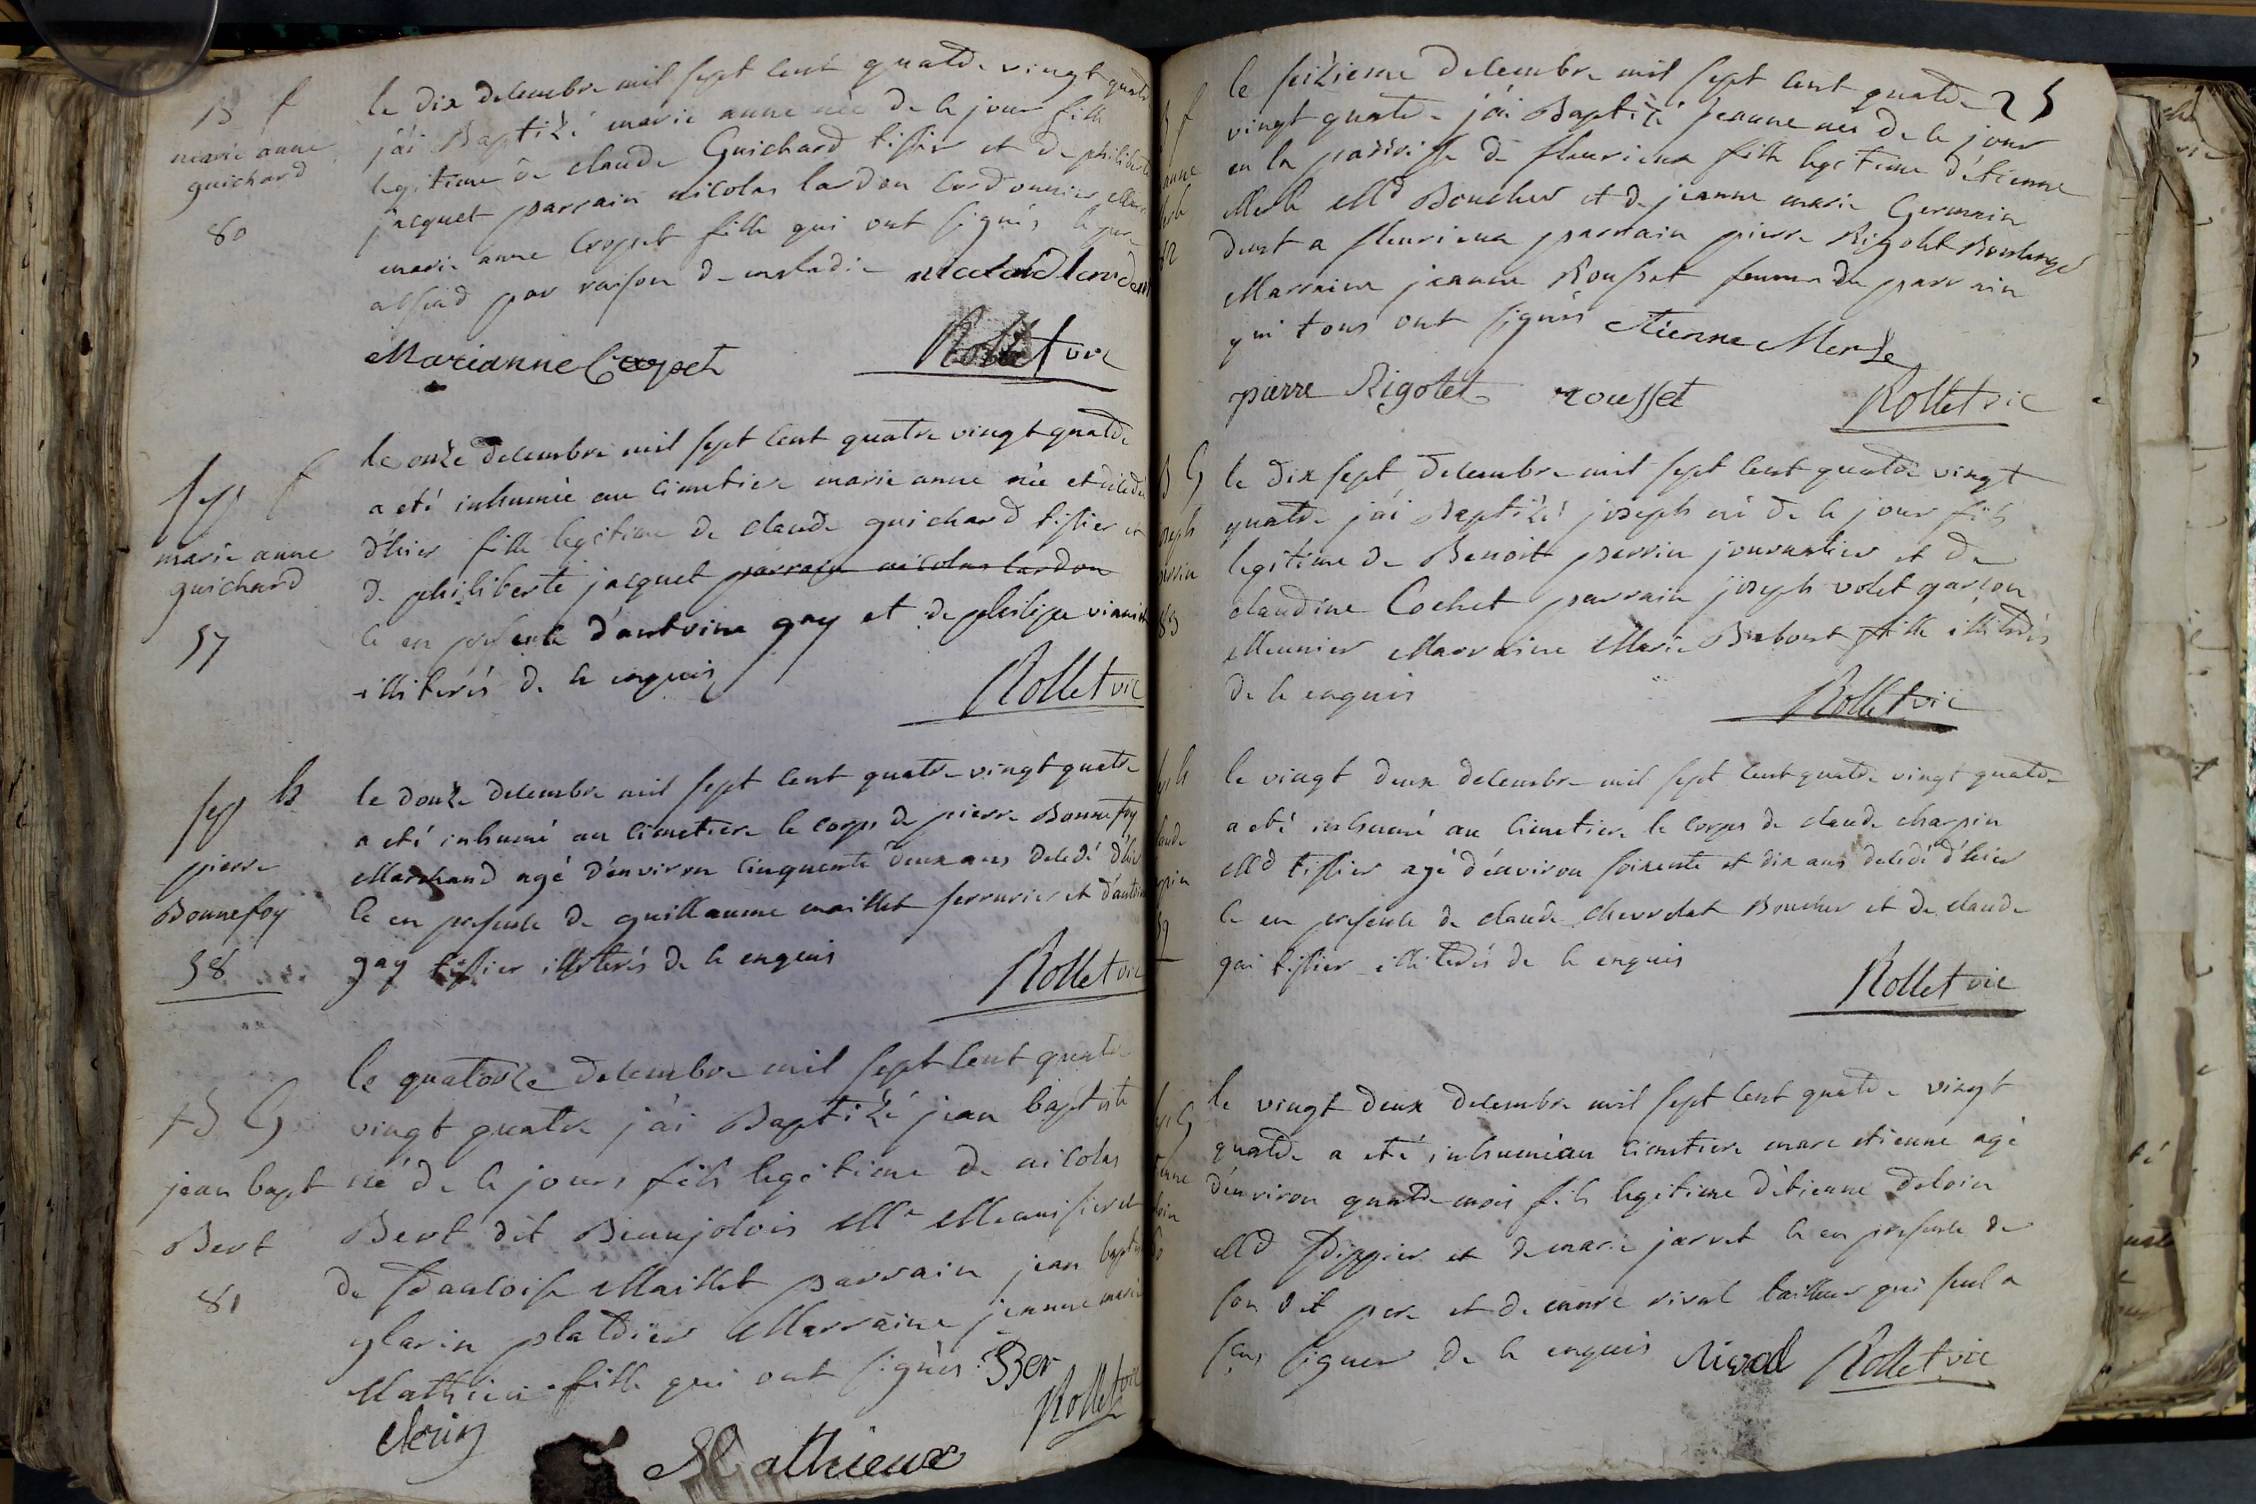 B f
marie anne
guichard
80
le dix decembre mil sept cent quatre vingt quatre
j'ai Baptizé marie anne née de ce jour fille
legitime de claude Guichard tissier et de philiberte
jacquet parrain nicolas lardon cordonnier
marie anne Cropet fille qui ont signés le pere
absend par raison de maladie nicolas lardon
Marianne Cropet Rollet vic
sep f
marie anne
guichard
57
le onze decembre mil sept cent quatre vingt quatre
a eté inhumée au cimetier marie anne née et
d'hier fille legitime de claude guichard tissier et
de philiberte jacquet parrain nicolas lardon
ce en presence d'antoine gay et de philipe
illiterés de ce enquis
Rollet vic
sep h
pierre
Bonnefoy
58
le douze decembre mil sept cent quatre vingt quatre
a eté inhumé au cimetiere le corps de pierre Bonnefoy
Marchand agé d'environ cinquente deux ans decedé d'hier
ce en presence de guillaume maillet serrurier et d'antoine
gay tissier illiterés de ce enquis
Rollet vic
B G
jean bapt
Bert
81
le quatorze decembre mil sept cent quatre
vingt quatre j'ai Baptizé jean baptiste
né de ce jours fils legitime de nicolas
Bert dit Beaujolois Me Menuisier et
de francoise Maillet parrain jean bapt
glarin platrier Marraine jeanne marie
Mathieu fille qui ont signés Ber
Rollet vic
Mathieux
25
le seizieme decembre mil sept cent quatre
vingt quatre j'ai Baptizé jeanne née de ce jour
en la parroisse de fleurieux fille legitime d'étienne
Merle Md Boucher et de jeanne marie Germain
dud a fleurieux parrain pierre Rigolet Boulanger
Marraine jeanne Rousset femme du parrain
qui tous ont signés etienne Merle
pierre Rigolet rousset Rollet vic
B G
83
le dix sept decembre mil sept cent quatre vingt
quatre j'ai Baptizé joseph né de ce jour fils
legitime de Benoit perrin journalier et de
claudine Cochet parrain joseph volet garcon
Meunier Marraine Marie fille illiterés
de ce enquis
Rollet vic
le vingt deux decembre mil sept cent quatre vingt quatre
a eté inhumé au cimetiere le corps de claude charpin
Md tissier agé d'environ soixente et dix ans decedé d'hier
ce en presence de claude chevrolat Boucher et de claude
gai tissier illiterés de ce enquis
Rollet vic
le vingt deux decembre mil sept cent quatre vingt
quatre a eté inhumé au cimetiere marc etienne agé
d'environ quatre mois fils legitime d'étienne deloin
Md frippier et de marie jarret ce en presence de
son dit pere et de marc rival tailleur qui seul a
sçus signer de ce enquis Rival Rollet vic